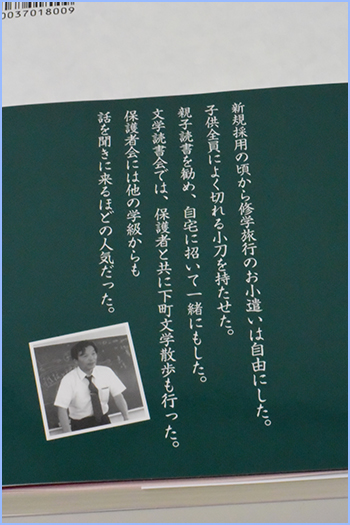 0037018009
新規採用の頃から修学旅行のお小遣いは自由にした。
子供全員によく切れる小刀を持たせた。
親子読書を勧め、自宅に招いて一緒にもした。
文学読書会では、保護者と共に下町文学散歩も行った。
保護者会には他の学級からも
話を聞きに来るほどの人気だった。